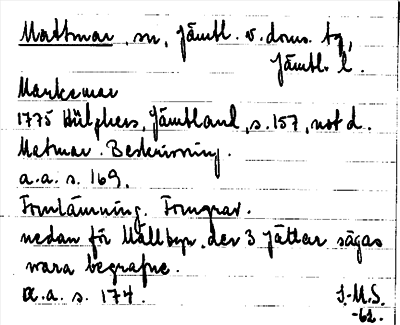 Mattmar, sn, Jämtl. v. doms. tg,
Jämtl. l.
Markemar
1775 Hülphers, Jämtland, s. 157, not d.
Matmar. Beskrivning.
a.a. s. 169.
Fornlämning. Forngrav.
nedan för Mällbyn, der 3 Jättar sägas
vara begrafne.
a.a. s. 174.
I.-M.S.
-62.